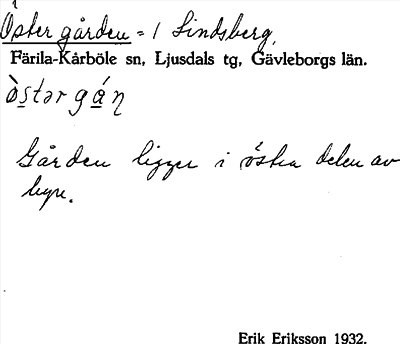 Östergården = 1 Lindsberg,
Färila-Kårböle sn, Ljusdals tg, Gävleborgs län.
òstərgán̥
Gården ligger i östra delen av
byn.
Erik Eriksson 1932.